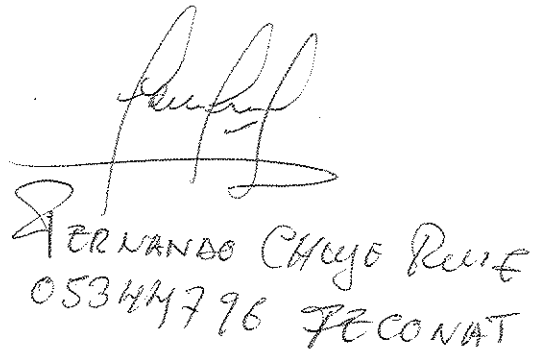 FERNANDO CHUJE RUIZ
05344796 FECONAT